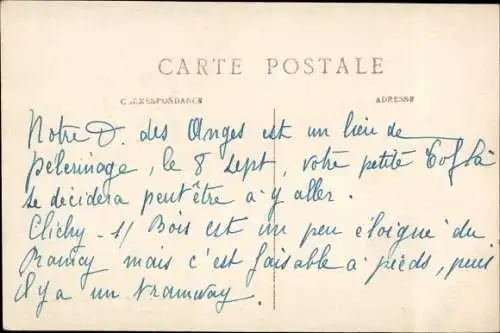 CARTE POSTALE
CORRESPONDANCE
ADRESSE
Notre D. des Anges est un lieu de
pelerinage, le 8 Sept, votre petite
se decidera peut être a y aller.
Clichy - s/ Bois est un peu éloigné du
Raincy mais c'est faisable a pieds, puis
il y a un tramway.